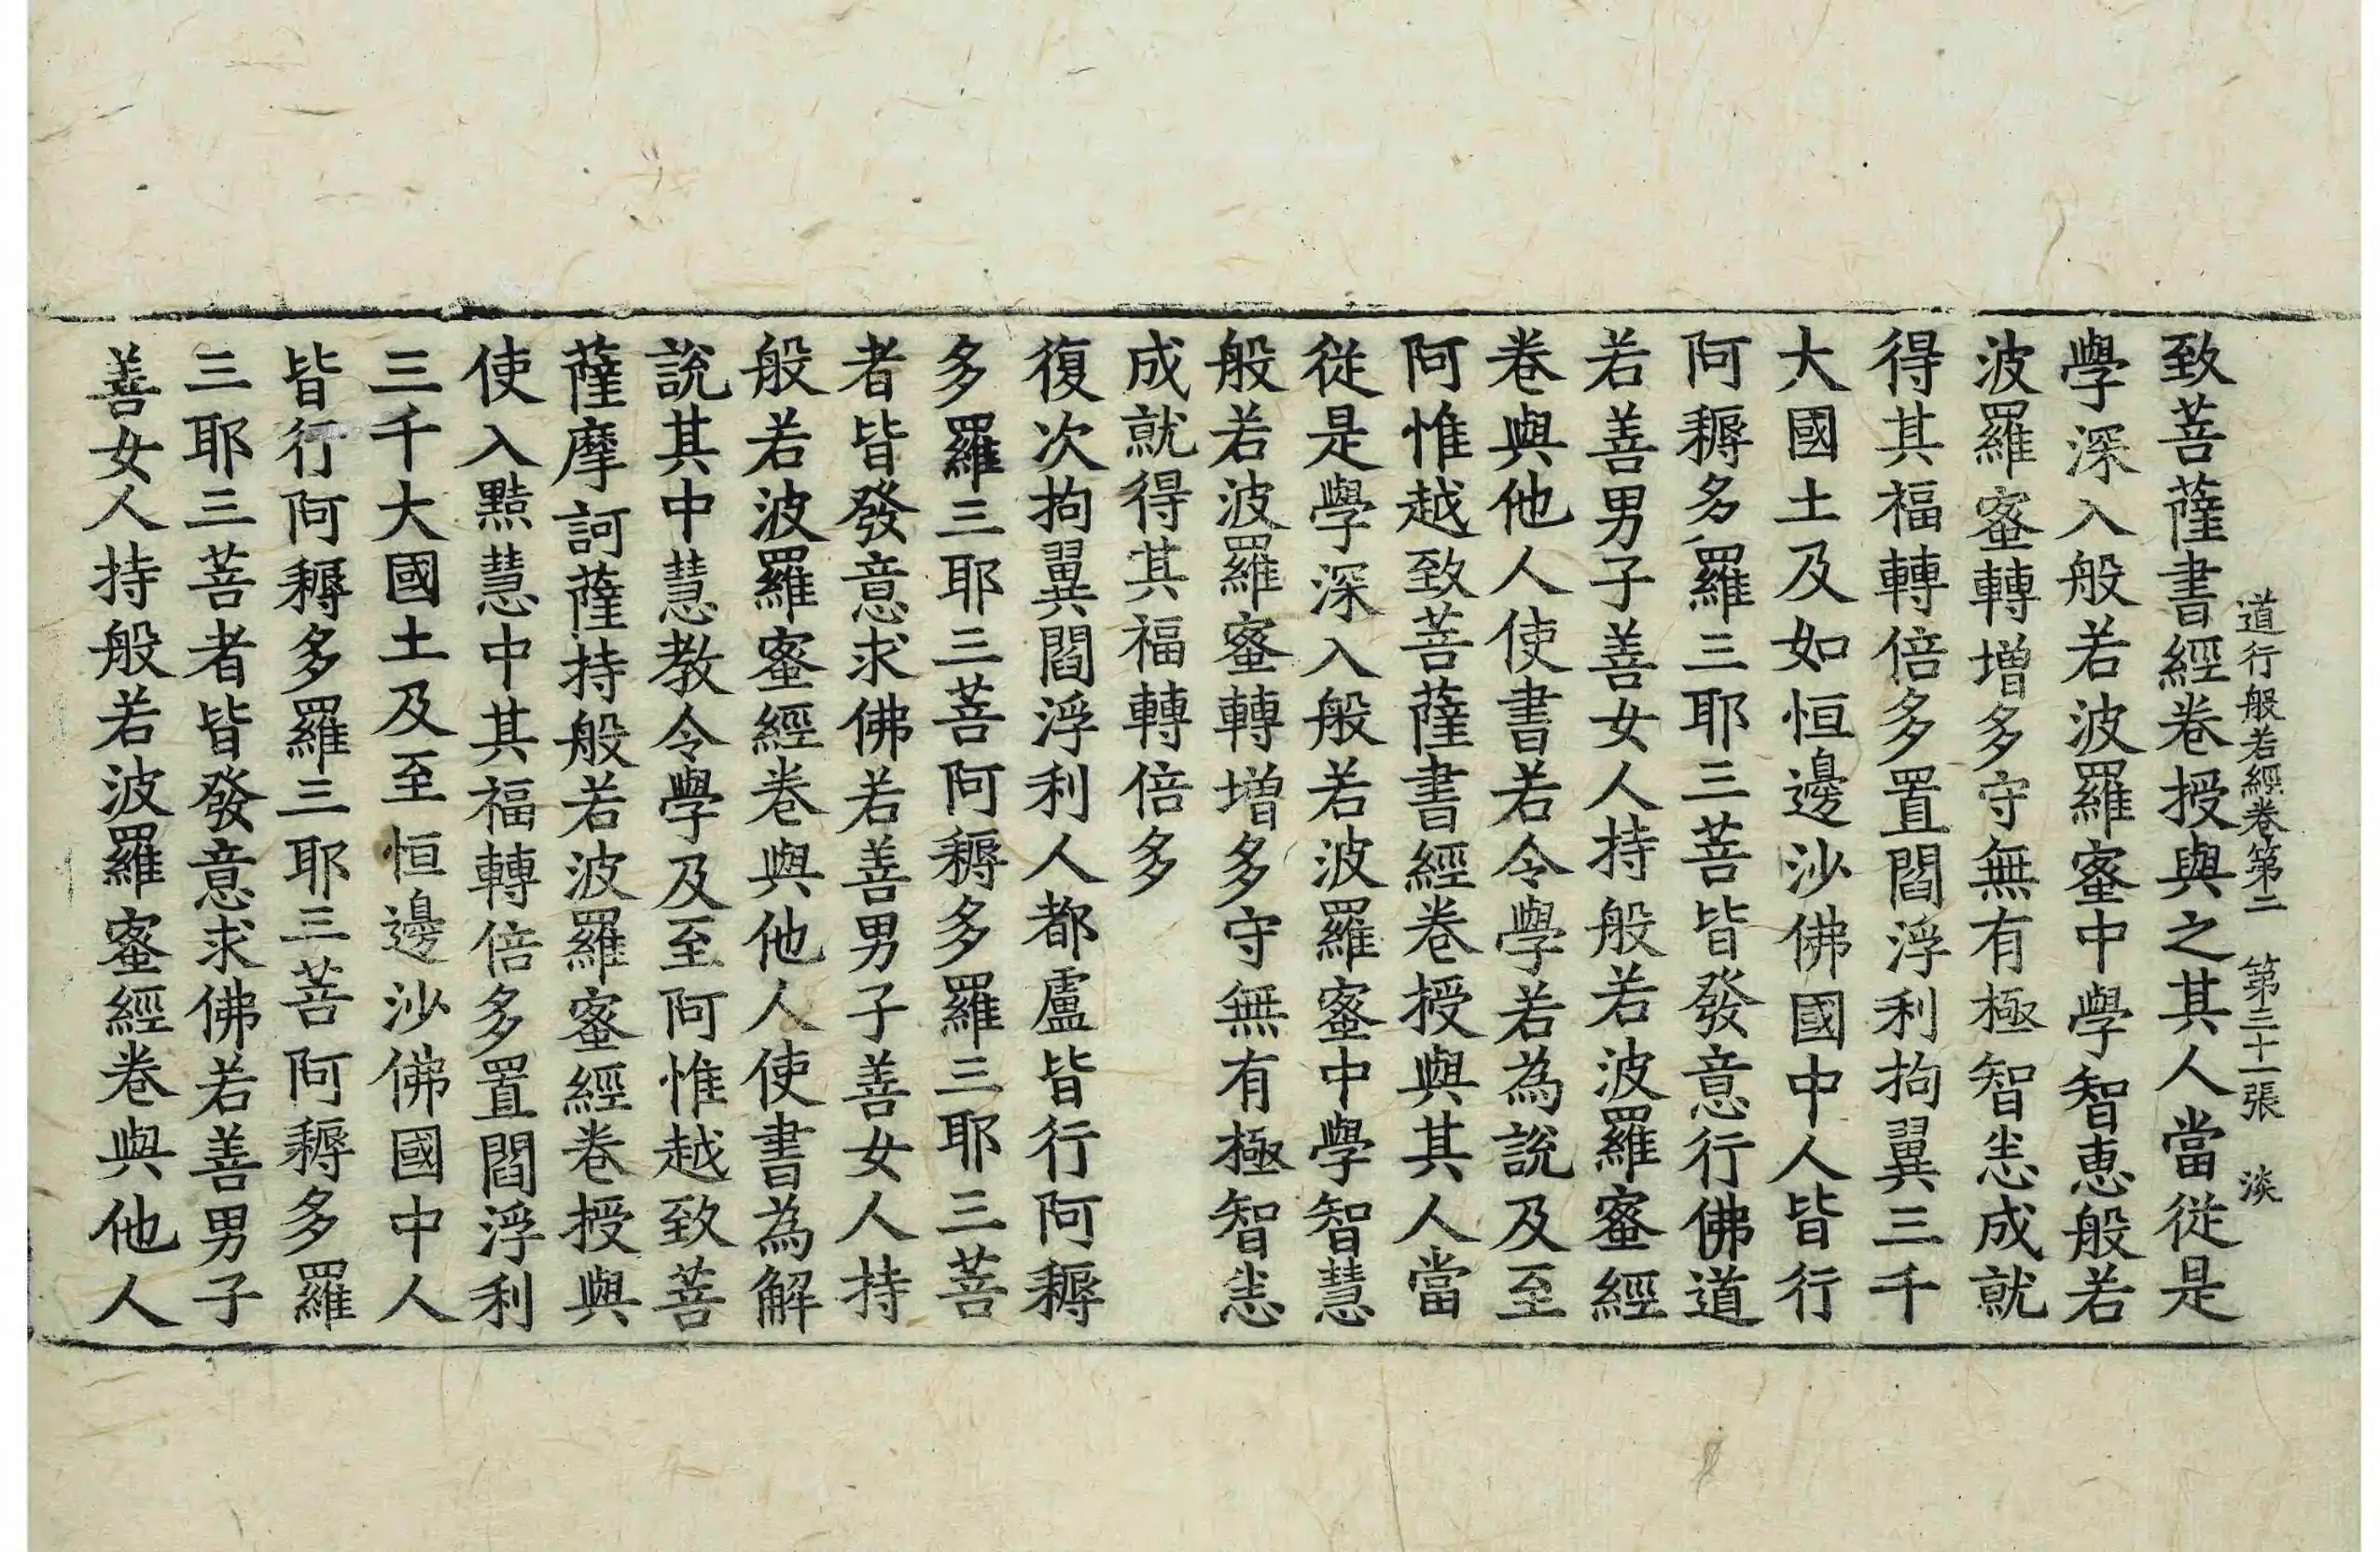 道行般若經卷第二　第三十一張　淡
致菩薩書經卷授與之其人當從是
學深入般若波羅蜜中學智恵般若
波羅蜜轉增多守無有極智悉成就
得其福轉倍多置閻浮利拘翼三千
大國土及如恒邊沙佛國中人皆行
阿耨多羅三耶三菩皆發意行佛道
若善男子善女人持般若波羅蜜經
卷與他人使書若令學若為說及至
阿惟越致菩薩書經卷授與其人當
從是學深入般若波羅蜜中學智慧
般若波羅蜜轉增多守無有極智悉
成就得其福轉倍多
復次拘翼閻浮利人都盧皆行阿耨
多羅三耶三菩阿耨多羅三耶三菩
者皆發意求佛若善男子善女人持
般若波羅蜜經卷與他人使書為解
說其中慧教令學及至阿惟越致菩
薩摩訶薩持般若波羅蜜經卷授與
使入黠慧中其福轉倍多置閻浮利
三千大國土及至恒邊沙佛國中人
皆行阿耨多羅三耶三菩阿耨多羅
三耶三菩者皆發意求佛若善男子
善女人持般若波羅蜜經卷與他人